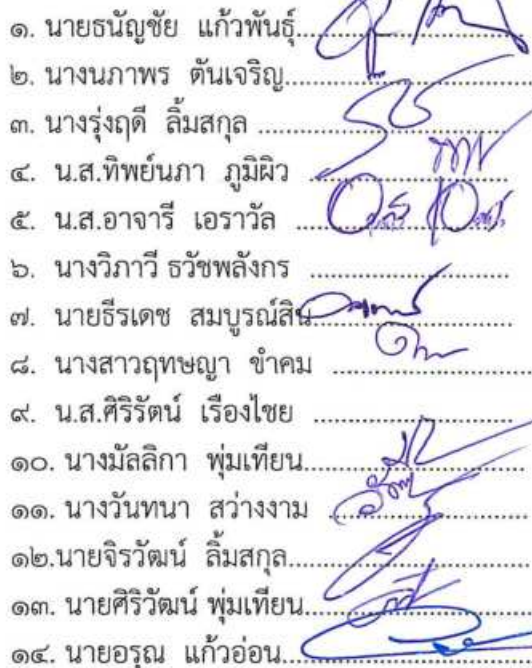 ๑. นายธนัญชัย แก้วพันธุ์
๒. นางนภาพร ตันเจริญ
๓. นางรุ่งฤดี ลิ้มสกุล
๔. น.ส.ทิพย์นภา ภูมิผิว
๕. น.ส.อาจารี เอราวัล
๖. นางวิภาวี ธวัชพลังกร
๗. นายธีรเดช สมบูรณ์สิน
๘. นางสาวฤทษญา ขำคม
๙. น.ส.ศิริรัตน์ เรืองไชย
๑๐. นางมัลลิกา พุ่มเทียน
๑๑. นางวันทนา สว่างงาม
๑๒.นายจิรวัฒน์ ลิ้มสกุล
๑๓. นายศิริวัฒน์ พุ่มเทียน
๑๔. นายอรุณ แก้วอ่อน